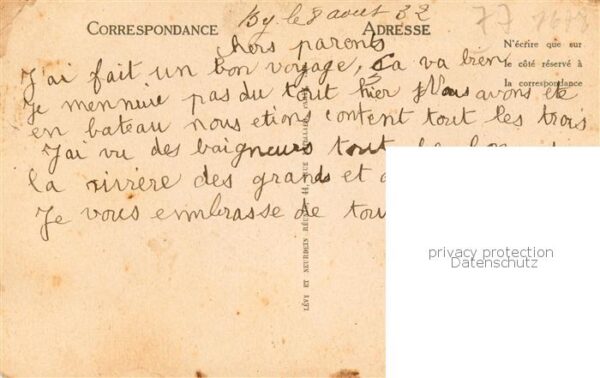 By le 8 aout 32
77
CORRESPONDANCE
ADRESSE
chers parents
N'écrire que sur
le côté réservé à
la correspondance
J'ai fait un bon voyage, Ca va bien
Je mennuie pas du tout hier Nous avons été
en bateau nous etions content tout les trois
J'ai vu des baigneurs
la rivière des grands et
Je vous embrasse de tou
LÉVY ET NEURDEIN RÉUNIS, 44, RUE
privacy protection
Datenschutz